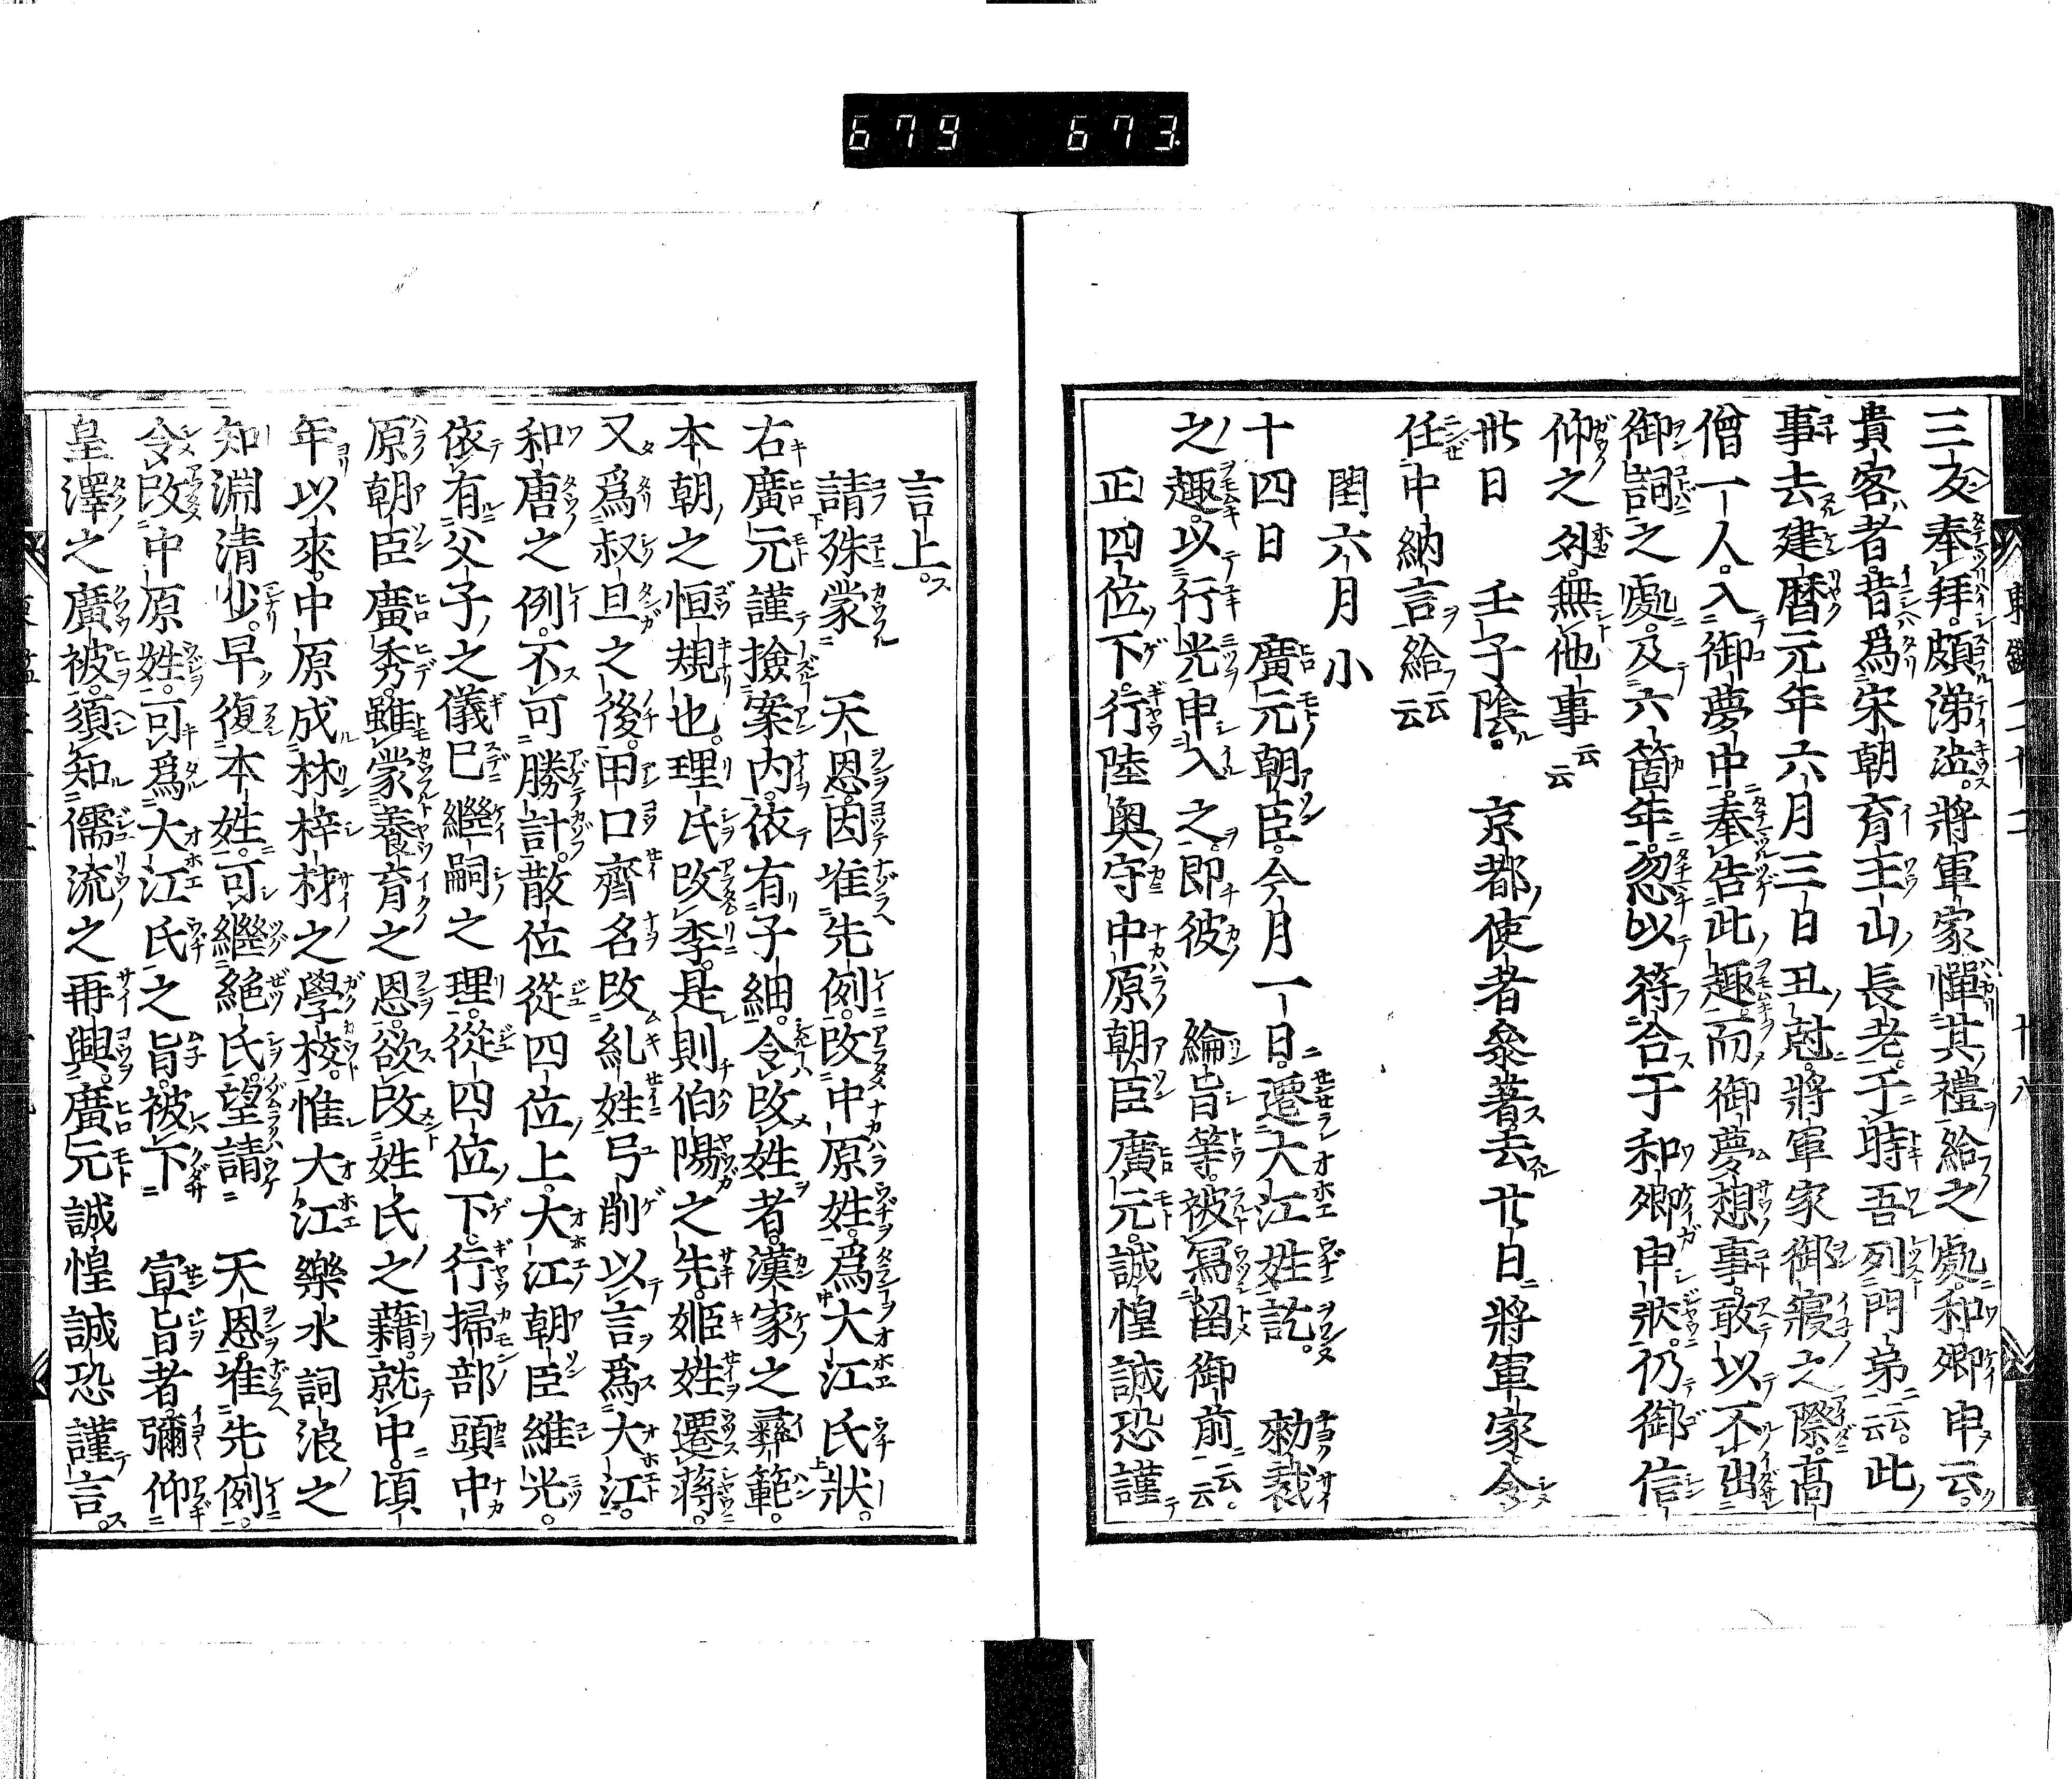 679 673
三反奉拜。頗涕泣。將軍家憚其禮給之處。和卿申云。
貴客者。昔爲宋朝育王山長老。于時吾列門弟云云。此
事去建曆元年六月三日丑尅。將軍家御寢之際。高
僧一人。入御夢中。奉告此趣。而御夢想事。敢以不出
御詞之處。及六箇年。忽以符合于和卿申狀。仍御信
仰之外。無他事云云
卅日　壬子陰。　京都使者參著。去廿日將軍家令
任中納言給云云
閏六月小
十四日　廣元朝臣。今月一日。遷大江姓訖。　勅裁
之趣。以行光申入之。即彼　綸旨等。被寫留御前云云。
正四位下。行陸奥守中原朝臣廣元。誠惶誠恐謹
言上。
請殊蒙　天恩。因准先例。改中原姓。爲大江氏狀。
右廣元謹撿案內。依有子細。令改姓者。漢家之彝範。
本朝之恒規也。理氏改李。是則伯陽之先。姬姓遷蔣。
又爲叔旦之後。甲口齊名改糺姓。弓削以言爲大江。
和唐之例。不可勝計。散位從四位上。大江朝臣維光。
依有父子之儀巳繼嗣之理。從四位下。行掃部頭中
原朝臣廣秀。雖蒙養育之恩。欲改姓氏之藉。就中。頃
年以來。中原成林梓材之學校。惟大江樂水詞浪之
知淵清少。早復本姓。可繼絶氏。望請　天恩。准先例。
令改中原姓。可爲大江氏之旨。被下　宣旨者。彌仰
皇澤之廣被。須知儒流之再興。廣元誠惶誠恐謹言。